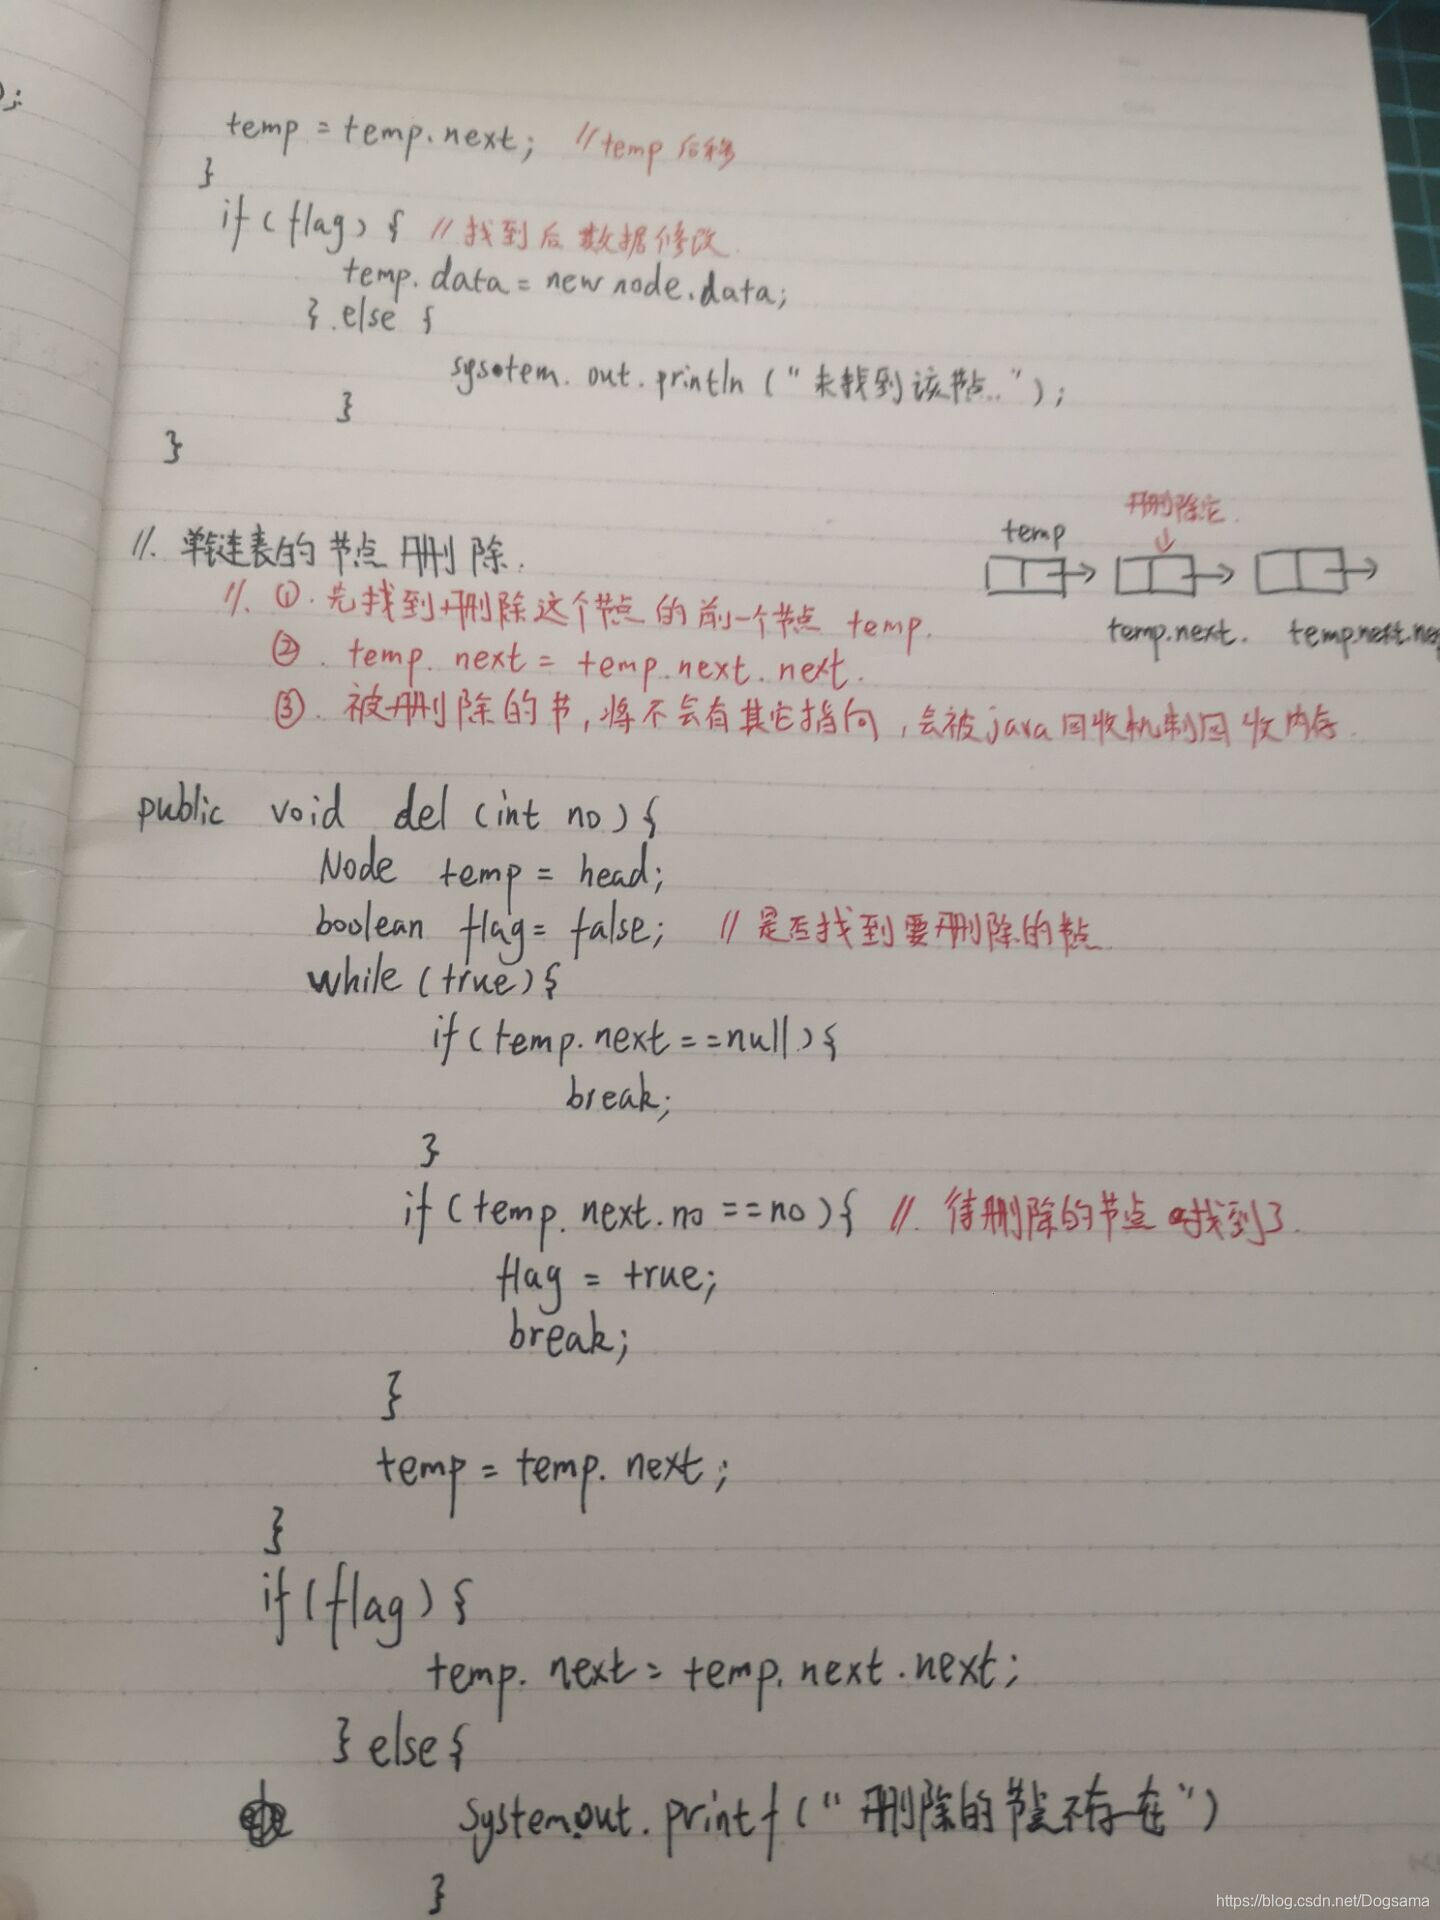 );
temp = temp.next; //temp后移
}
if(flag){ //找到后数据修改.
temp.data = newnode.data;
}.else {
sysotem.out.println("未找到该节点..");
}
}
//. 单链表的节点删除.
temp
删除它.
temp.next.
temp.next.ne
//. ①.先找到删除这个节点的前一个节点 temp.
②. temp.next = temp.next.next.
③. 被删除的节,将不会有其它指向,会被java回收机制回收内存.
public void del (int no){
Node temp = head;
boolean flag = false; //是否找到要删除的节点
while (true){
if(temp.next==null){
break;
}
if(temp.next.no==no){ //. 待删除的节点 找到了.
flag = true;
break;
}
temp = temp.next;
}
if(flag){
temp.next = temp.next.next;
} else {
System.out.printf("删除的节点不存在")
}
https://blog.csdn.net/Dogsama